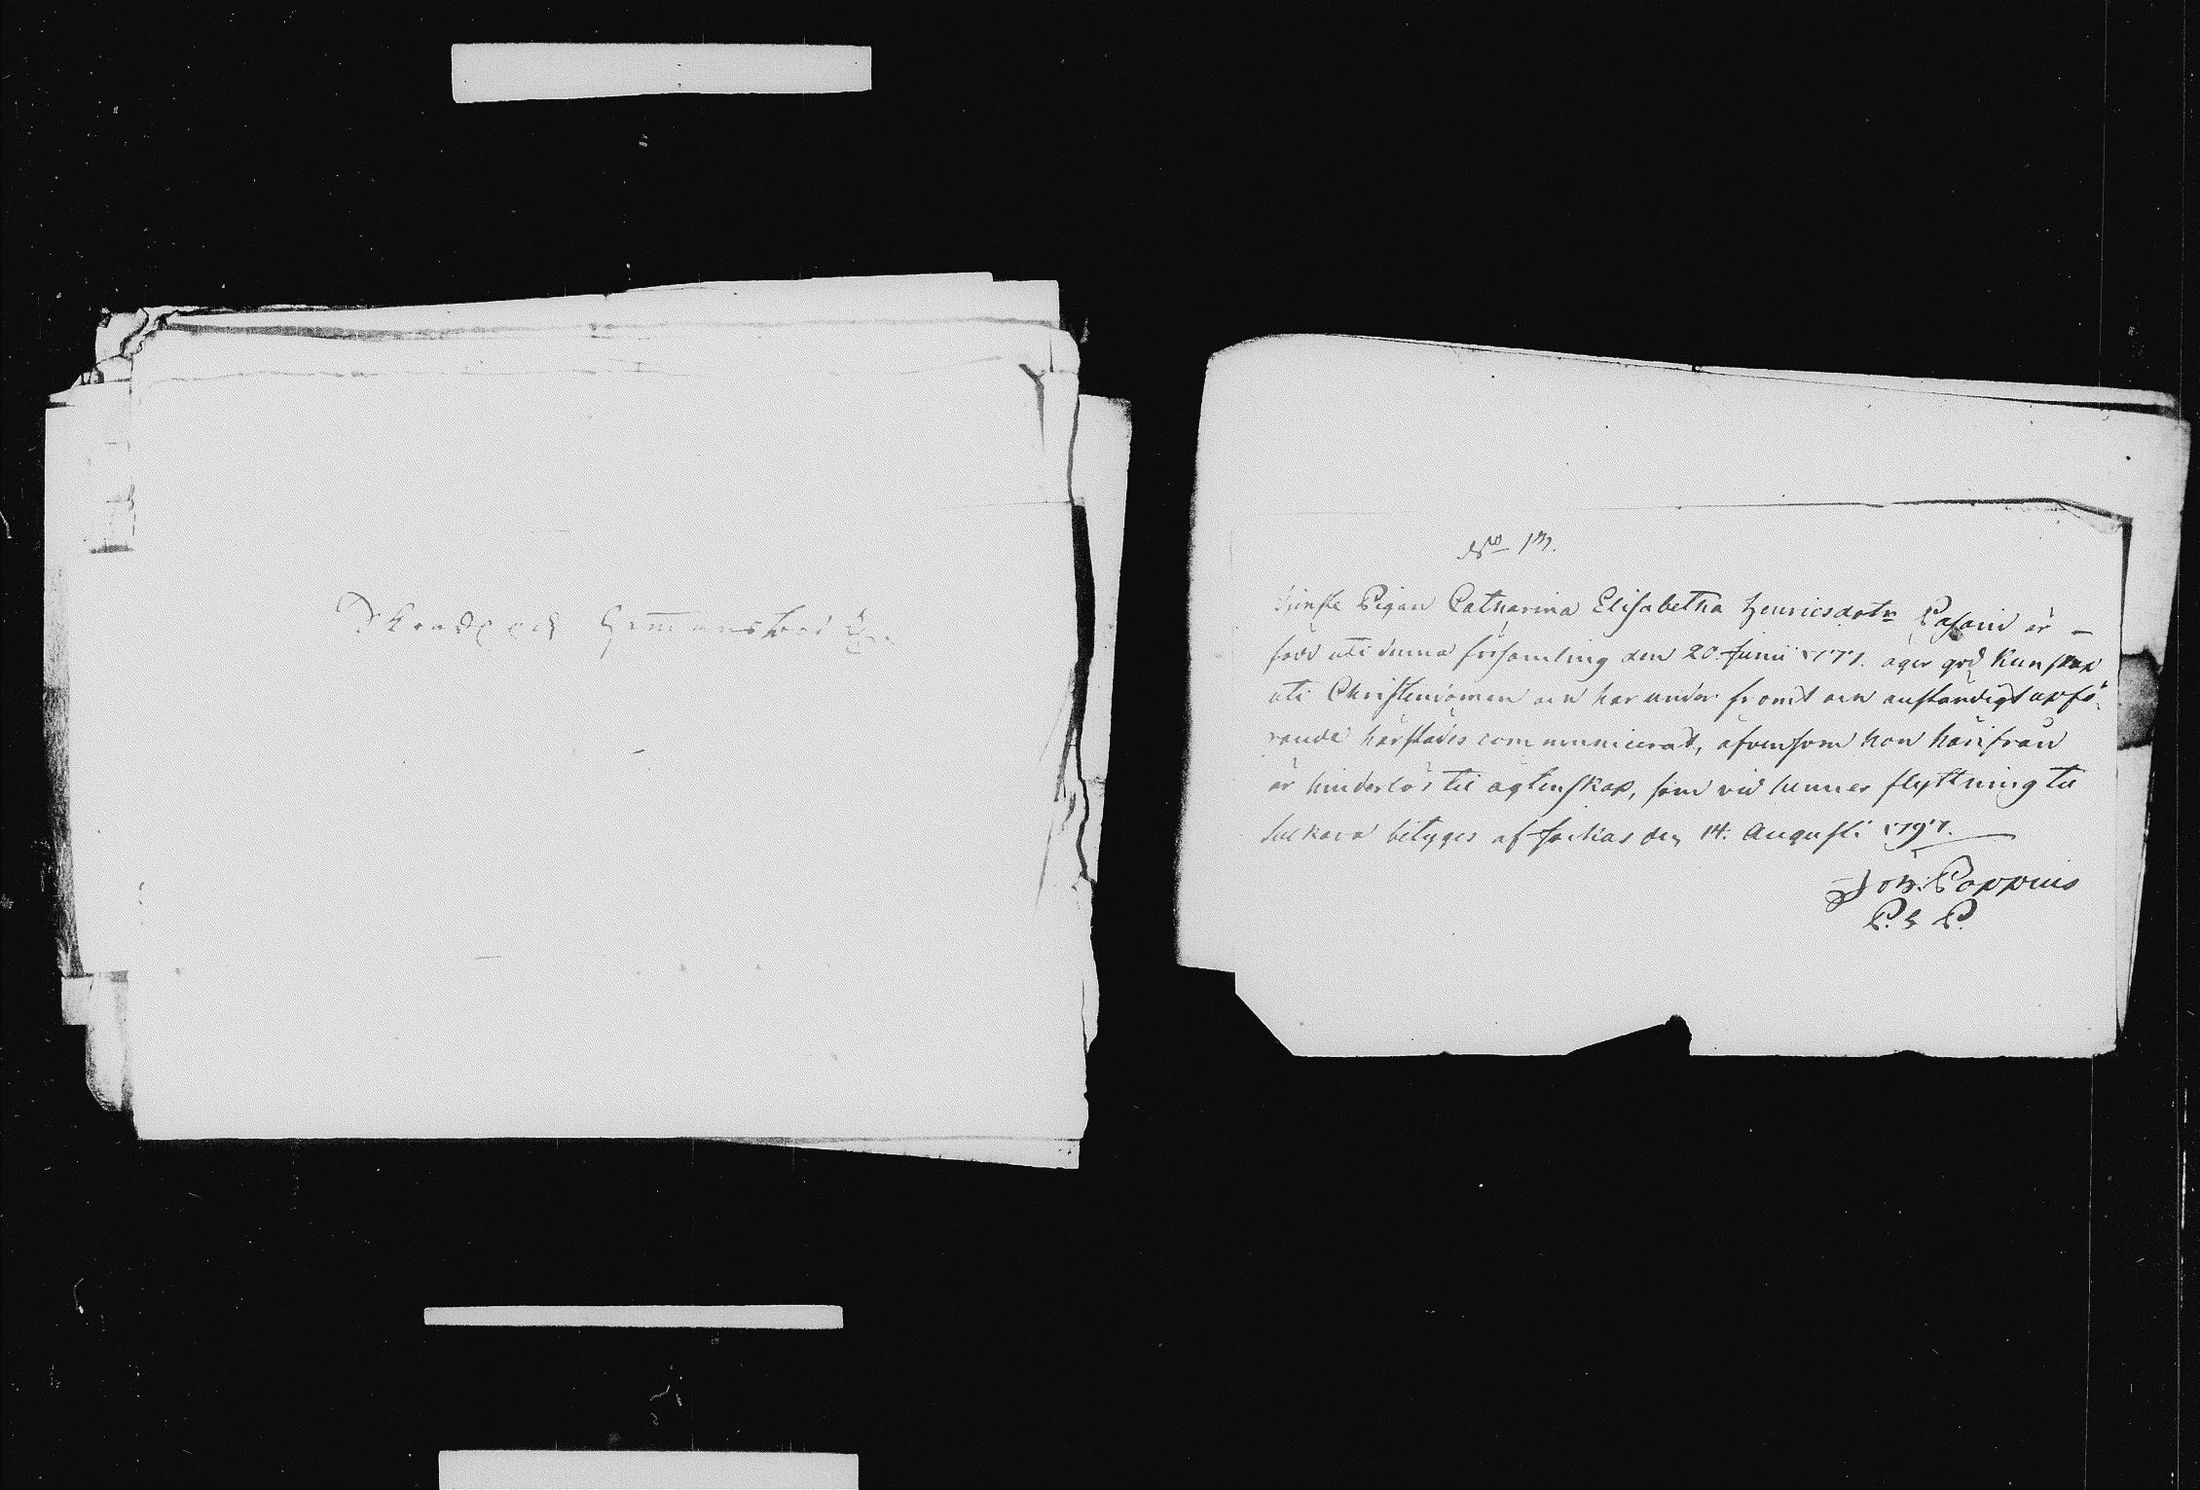 No 13.
Tienste Pigan Catharina Elisabetha Henricsdotr Pasani är
född uti denna församling den 20. Junii 1771. äger god kunskap
uti Christendomen och har under fromt och anständigt upfö-
rande härstädes communicerat, äfvensom hon härifrån
är hinderlös til ägtenskap, som vid hennes flyttning til
Sulkava betyges af Jockas den 14. Augusti 1791.
Joh: Poppius
P. & P.